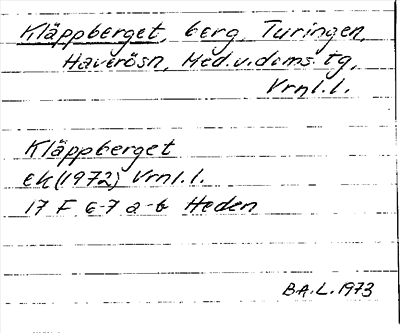 Kläppberget, berg, Turingen,
Haverösn, Med.v.doms.tg,
Vrnl.l.
Kläppberget
ek (1972) Vrnl.l.
17 F 6-7 a-b Heden
B.A.L. 1973